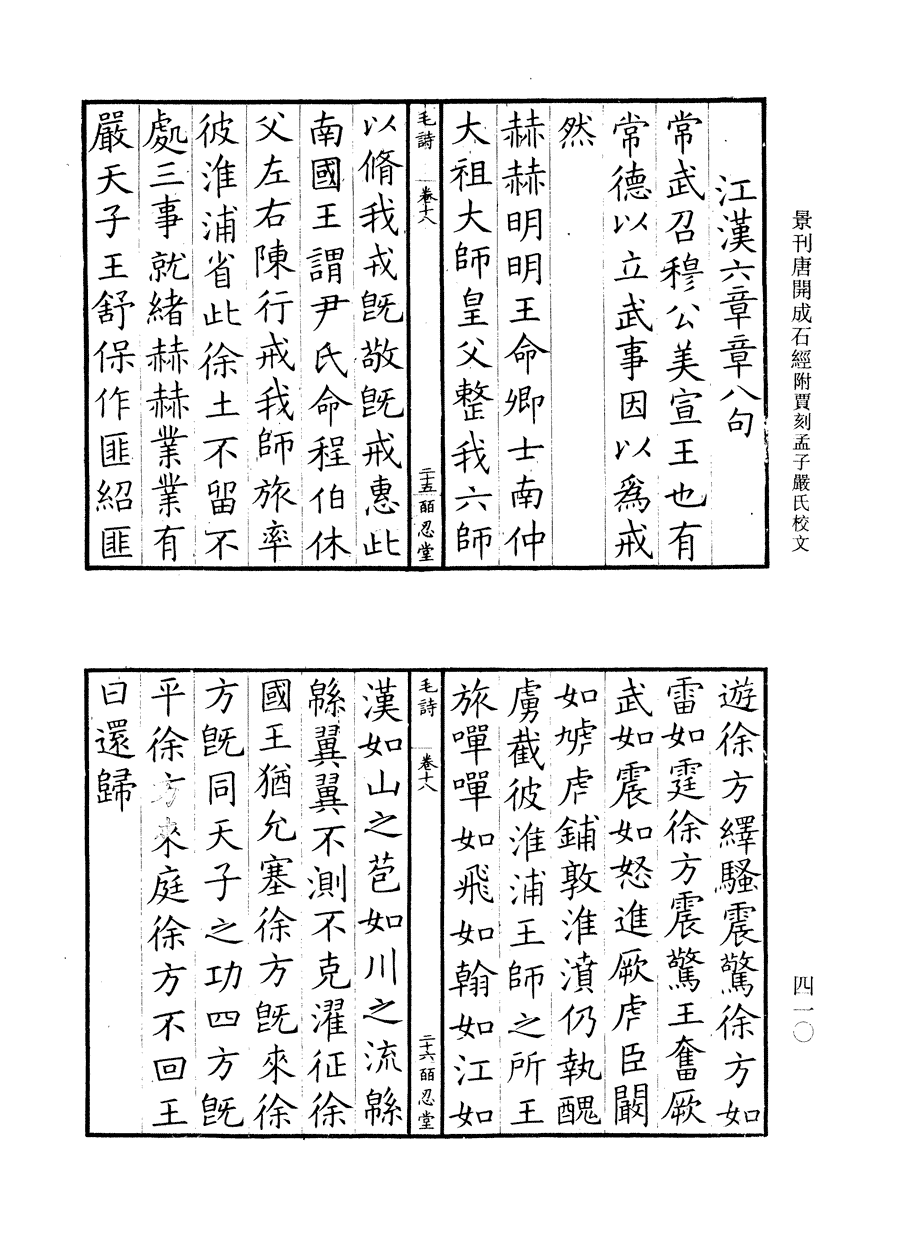 景刊唐開成石經附賈刻孟子嚴氏校文
四一〇
江漢六章章八句
常武召穆公美宣王也有
常德以立武事因以爲戒
然
赫赫明明王命卿士南仲
大祖大師皇父整我六師
毛詩 卷十八 二十五 皕忍堂
以脩我戎旣敬旣戒惠此
南國王謂尹氏命程伯休
父左右陳行戒我師旅率
彼淮浦省此徐土不留不
處三事就緒赫赫業業有
嚴天子王舒保作匪紹匪
遊徐方繹騷震驚徐方如
雷如霆徐方震驚王奮厥
武如震如怒進厥虎臣闞
如虓虎鋪敦淮濆仍執醜
虜截彼淮浦王師之所王
旅嘽嘽如飛如翰如江如
毛詩 卷十八 二十六 皕忍堂
漢如山之苞如川之流緜
緜翼翼不測不克濯征徐
國王猶允塞徐方旣來徐
方旣同天子之功四方旣
平徐方來庭徐方不回王
曰還歸